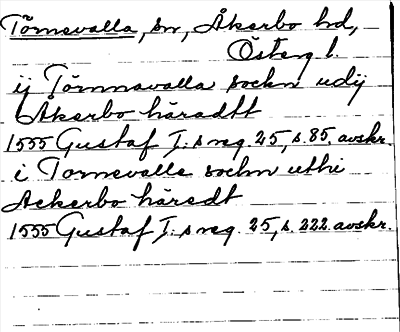 Törnevalla, sn, Åkerbo hd,
Österg l.
ij Törnnavalla sockn udij
Åkerbo häradtt
1555 Gustaf I:s reg. 25, s. 85. avskr.
i Tornevalla sochn uthi
Ackerbo häredt
1555 Gustaf I:s reg. 25, s. 222. avskr.